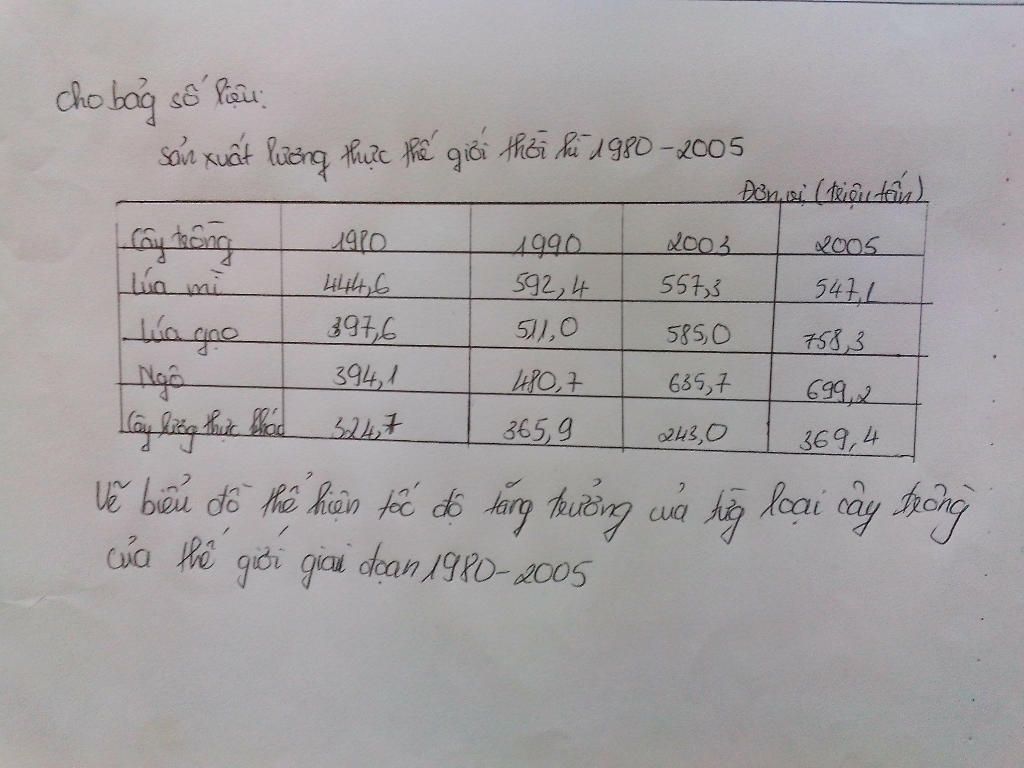 cho bảg số liệu:
sản xuất lương thực thế giới thời kì 1980-2005
Đơn vị (triệu tấn)
Cây trồng 1980 1990 2003 2005
lúa mì 444,6 592,4 557,3 547,1
lúa gạo 397,6 511,0 585,0 758,3
Ngô 394,1 480,7 635,7 699,2
Cây lương thực khác 324,7 365,9 243,0 369,4
Vẽ biểu đồ thể hiện tốc độ tăng trưởng của từg loại cây trồng
của thế giới giai đoạn 1980-2005